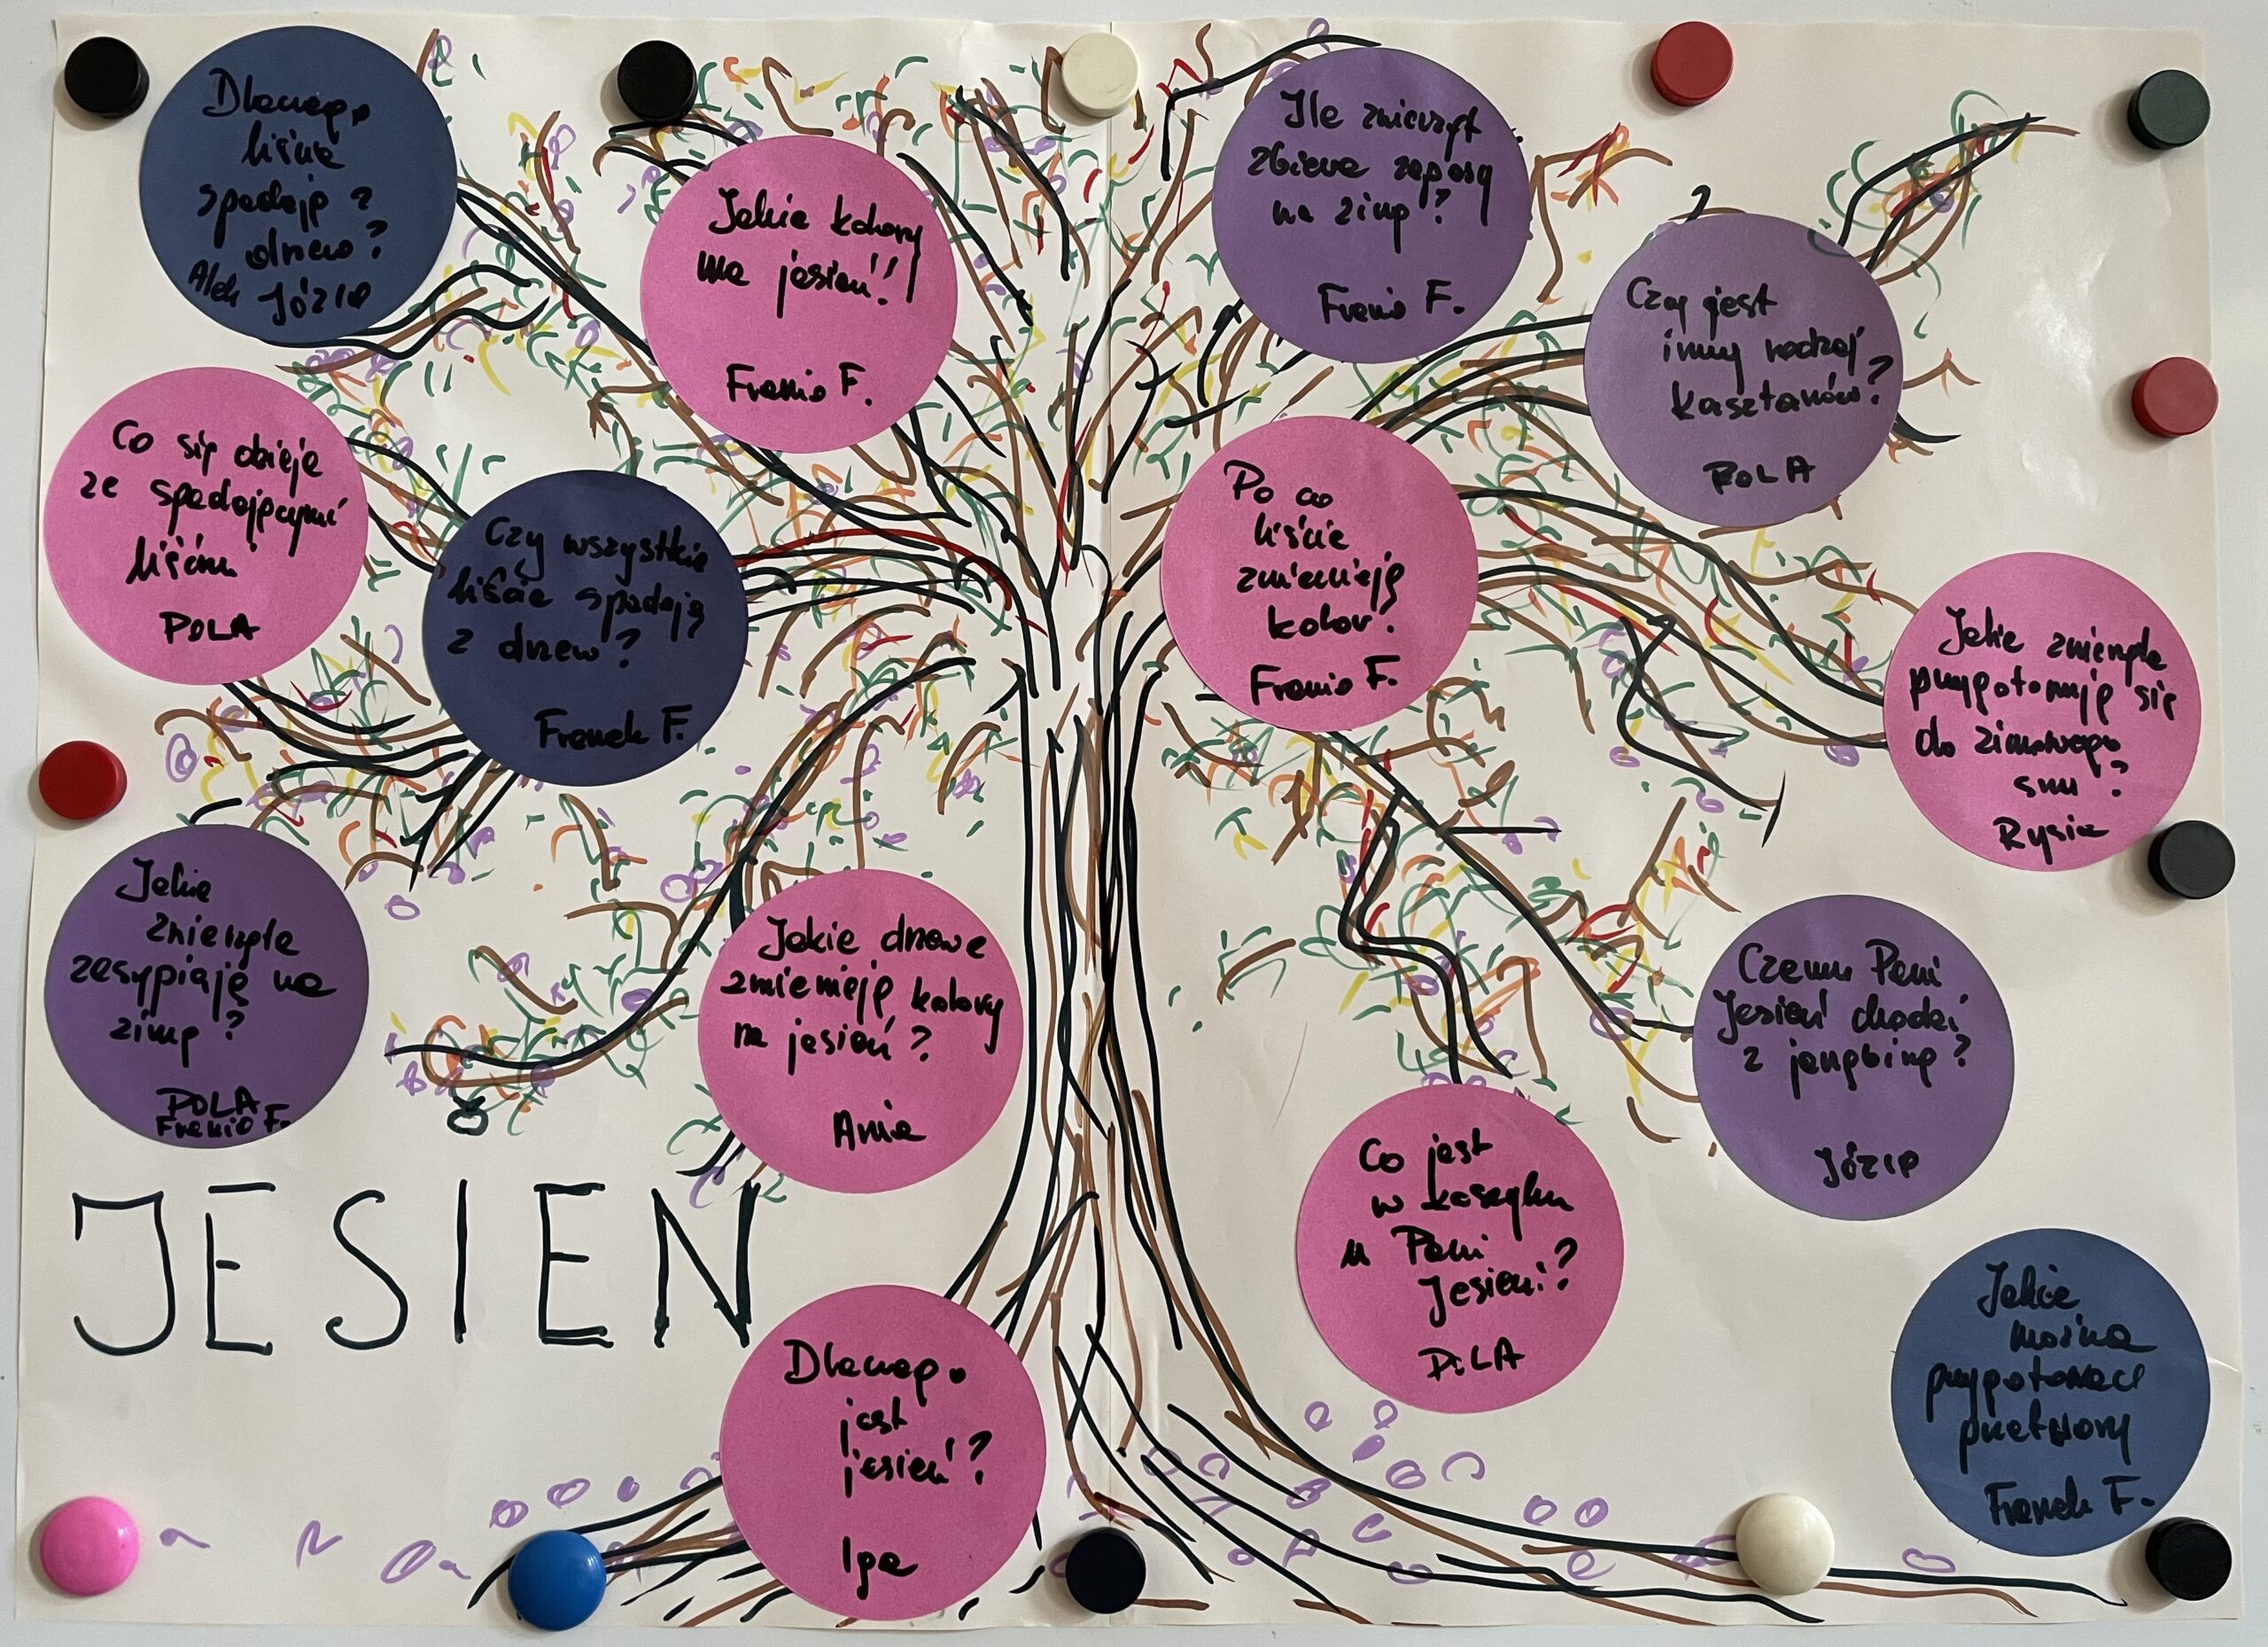 Dlaczego
liście
spadają z
drzew?
Alek Józio
Jakie kolory
ma jesień!!
Franio F.
Ile zwierząt
zbiera zapasy
na zimę?
Franio F.
Czy jest
inny rodzaj
kasztanów?
POLA
Co się dzieje
ze spadającymi
liśćmi
POLA
Czy wszystkie
liście spadają
z drzew?
Franek F.
Po co
liście
zmieniają
kolor?
Franio F.
Jakie zwierzęta
przygotowują się
do zimowego
snu?
Rysia
Jakie
zwierzęta
zasypiają na
zimę?
POLA
Franio F.
Jakie drzewa
zmieniają kolory
na jesień?
Ania
Czemu Pani
Jesień chodzi
z jarzębiną?
Józio
Co jest
w koszyku
u Pani
Jesieni?
POLA
JESIEN
Dlaczego
jest
jesień?
Iga
Jakie
można
przygotować
przetwory
Franek F.